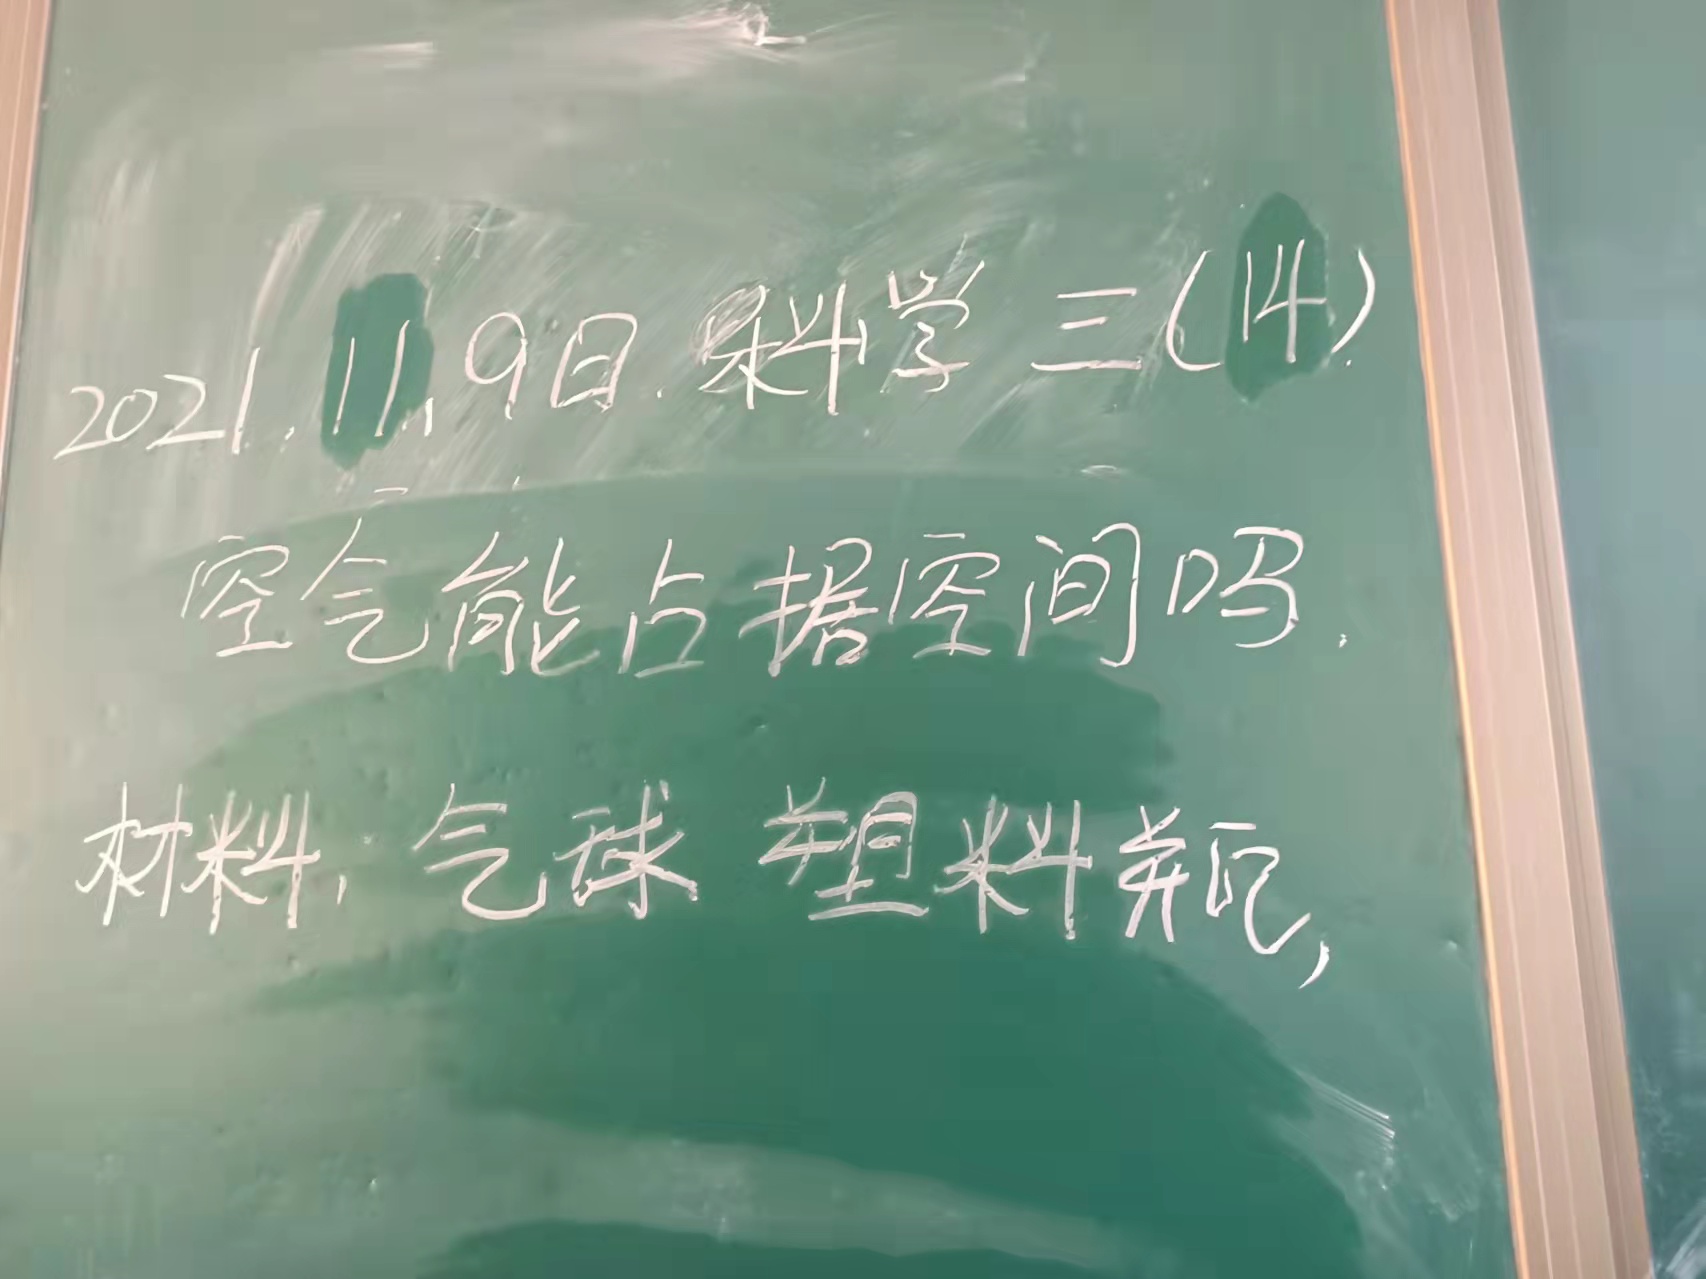 2021.11.9日.科学 三(14).
空气能占据空间吗.
材料, 气球 塑料瓶,